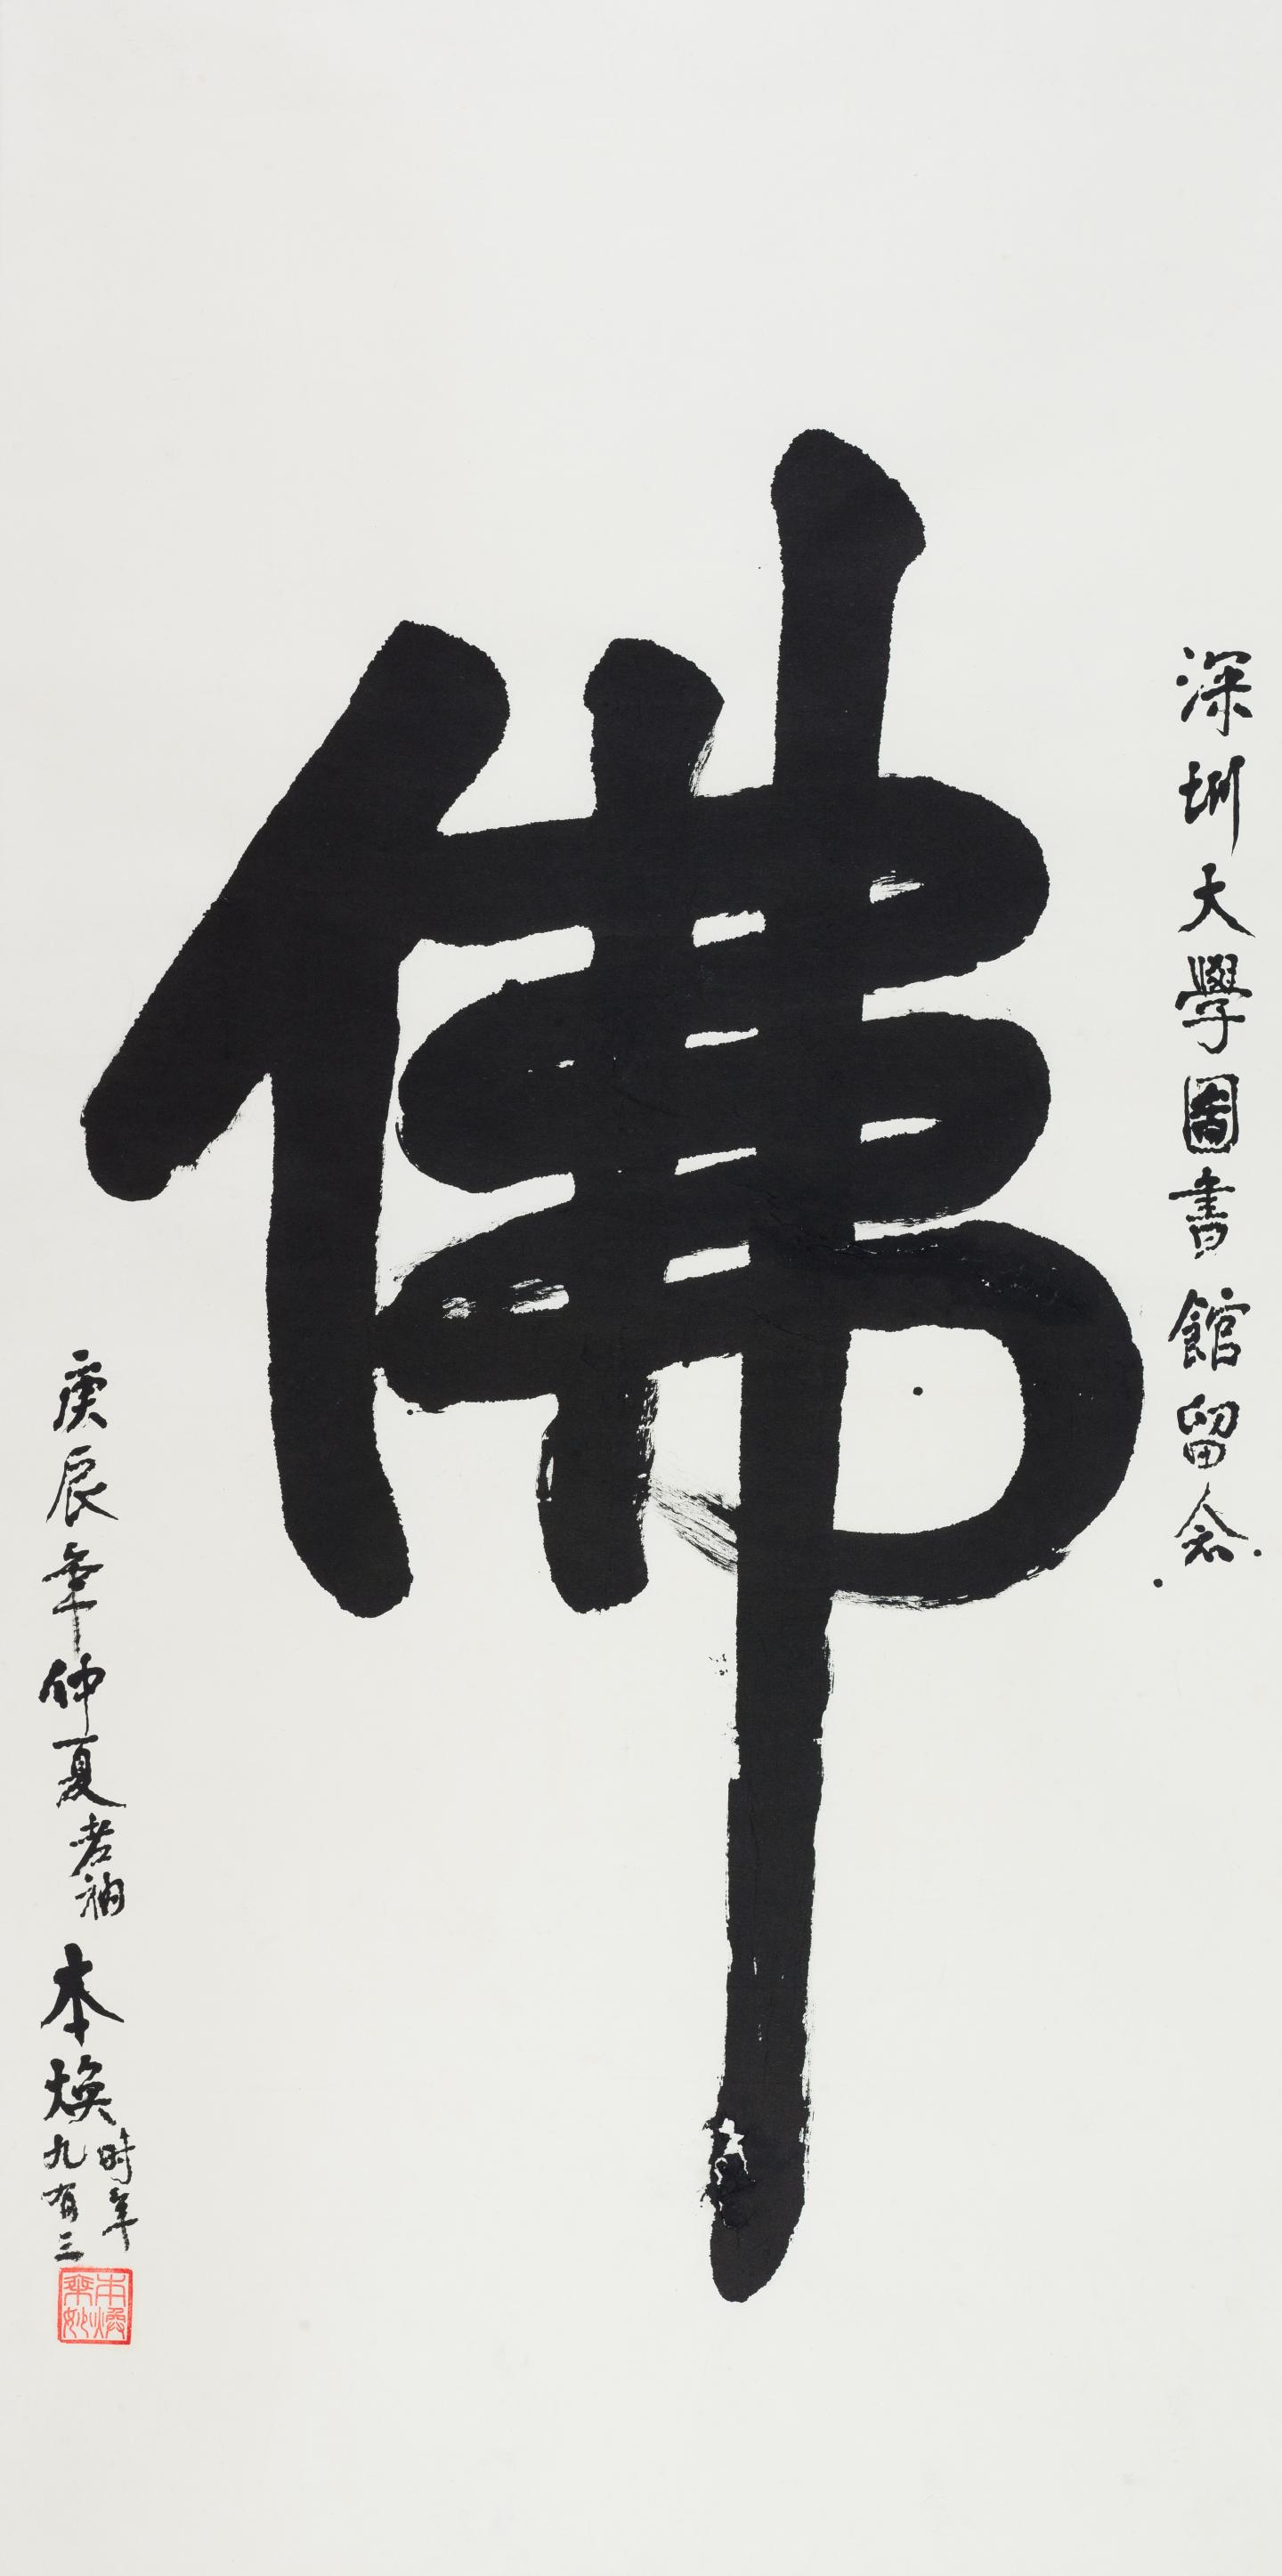 深圳大學圖書館留念
佛
庚辰年仲夏老衲本焕
時年
九有三
本焕
乘妙